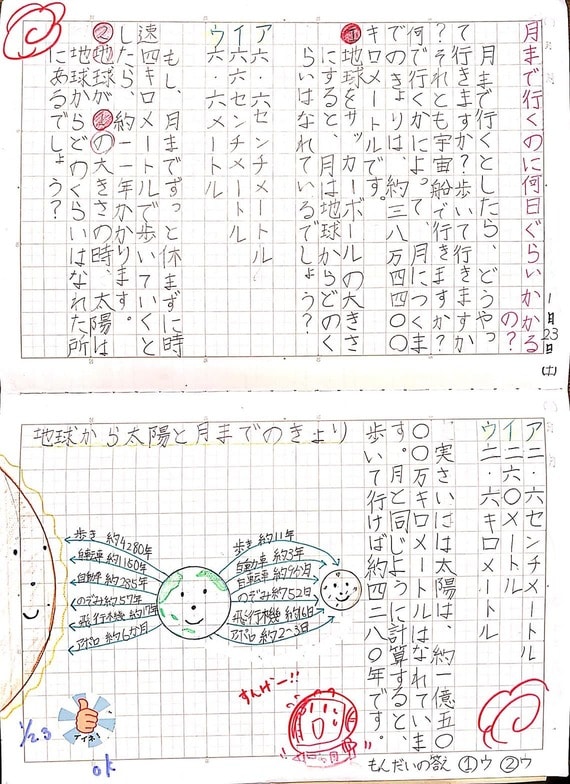 1月23日(土)
月まで行くのに何日ぐらいかかる
の?
月まで行くとしたら、どうやっ
て行きますか?歩いて行きますか
?それとも宇宙船で行きますか?
何で行くかによって、月につくま
でのきょりは、約三八万四四〇〇
キロメートルです。
①地球をサッカーボールの大きさ
にすると、月は地球からどのく
らいはなれているでしょう?
ア六・六センチメートル
イ六六センチメートル
ウ六・六メートル
もし、月までずっと休まずに時
速四キロメートルで歩いていくと
したら、約一一年かかります。
②地球が①の大きさの時、太陽は
地球からどのくらいはなれた所
にあるでしょう?
ア二・六センチメートル
イ二六〇メートル
ウ二・六キロメートル
実さいには太陽は、約一億五〇
〇〇万キロメートルはなれていま
す。月と同じように計算すると、
歩いて行けば約四二八〇年です。
もんだいの答え ①ウ ②ウ
地球から太陽と月までのきょり
歩き 約11年
自動車 約3年
自転車 約9か月
のぞみ 約52日
飛行機 約16日
アポロ 約2~3日
歩き 約4280年
自転車 約1150年
自動車 約285年
のぞみ 約57年
飛行機 約17年
アポロ 約6か月
すんげー!!
アイネ!
1/23
ok